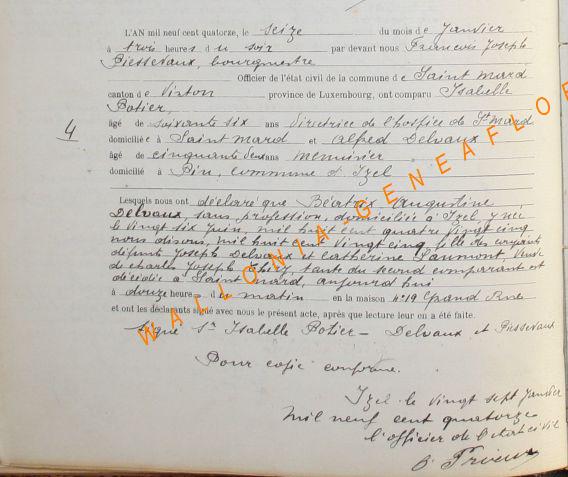 L'AN mil neuf cent quatorze, le seize du mois de Janvier
à trois heures du soir par devant nous François Joseph
Piessevaux, bourgmestre
Officier de l'état civil de la commune de Saint Mard
canton de Virton province de Luxembourg, ont comparu Isabelle
Potier,
4
âgé de soixante six ans directrice de l'hospice de St Mard
domiciliée à Saint mard et Alfred Delvaux
âgé de cinquante deux ans menuisier
domicilié à Pin, commune d'Izel
Lesquels nous ont déclaré que Béatrix Augustine
Delvaux, sans profession, domiciliée à Izel, y née
le vingt six juin, mil huit cent quatre vingt cinq
nous disons, mil huit cent vingt cinq, fille des conjoints
défunts Joseph Delvaux et Catherine Laumont, veuve
de Charles Joseph, tante du second comparant est
décédée à Saint mard, aujourd'hui
à douze heures du matin en la maison n° 19 Grand Rue
et ont les déclarants signé avec nous le présent acte, après que lecture leur en a été faite.
signé Sr Isabelle Potier - Delvaux et Piessevaux
Pour copie conforme.
Izel le vingt sept Janvier
mil neuf cent quatorze
l'officier de l'état civil
WALLONIA-GENEAFLO